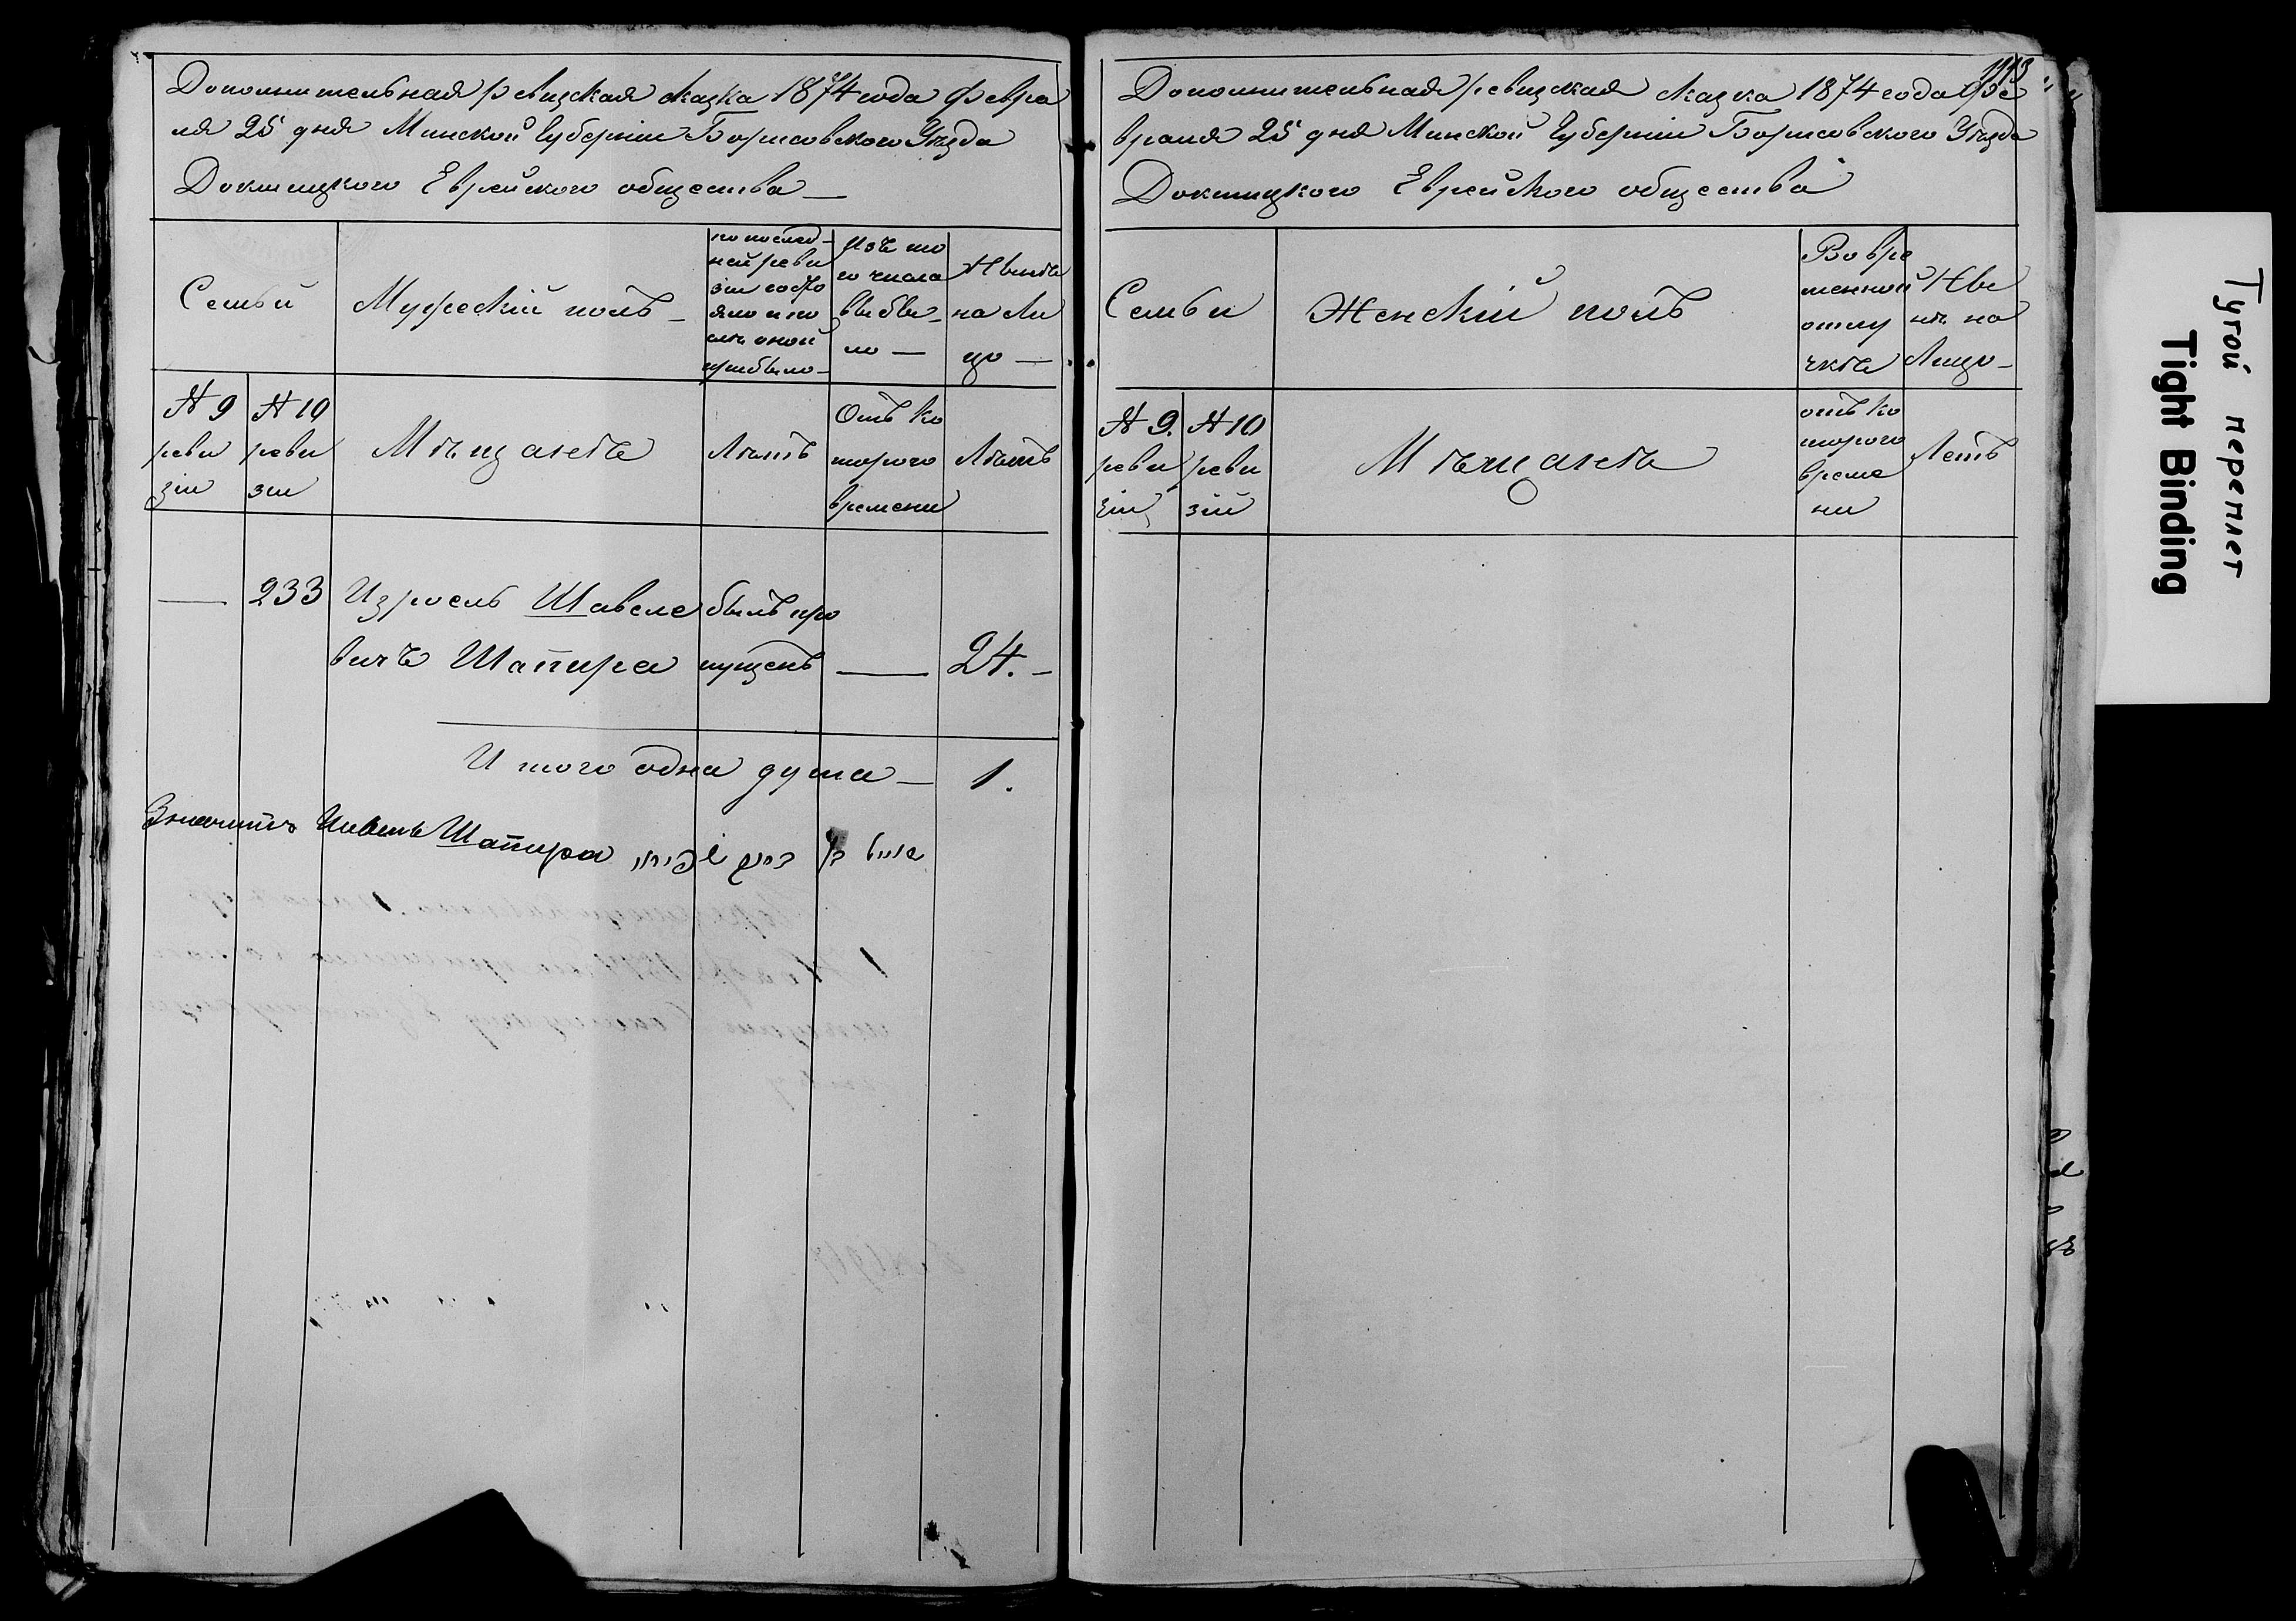 Дополнительная ревизская сказка 1874 года Февра
ля 25 дня Минской Губерніи Борисовского Уѣзда
Докшицкого Еврейского общества —
Семьи
Мужескій полъ —
по послед-
ней реви
зіи состо
яло и по
слѣ оной
прибыло —
Изъ то
го числа
выбы-
ло —
Нынѣ
на ли
цо —
№ 9
реви
зіи
№ 10
реви
зіи
Мѣщанѣ
Лѣтъ
Отъ ко
торого
времени
Лѣтъ
— 233 Изроель Шавеле былъ про
вичъ Шапира пущенъ — 24. —
Итого одна душа — 1.
Шапира
113
Дополнительная ревизская сказка 1874 года Фе
враля 25 дня Минской Губерніи Борисовского Уѣзда
Докшицкого Еврейского общества
Семьи
Женскій полъ
Во вре
менной
отлу
чкѣ
Ны
нѣ на
Лицо —
№ 9.
реви
зіи
№ 10
реви
зій
Мѣщанѣ
отъ ко
торого
време
ни
Летъ
Тугой переплет
Tight Binding